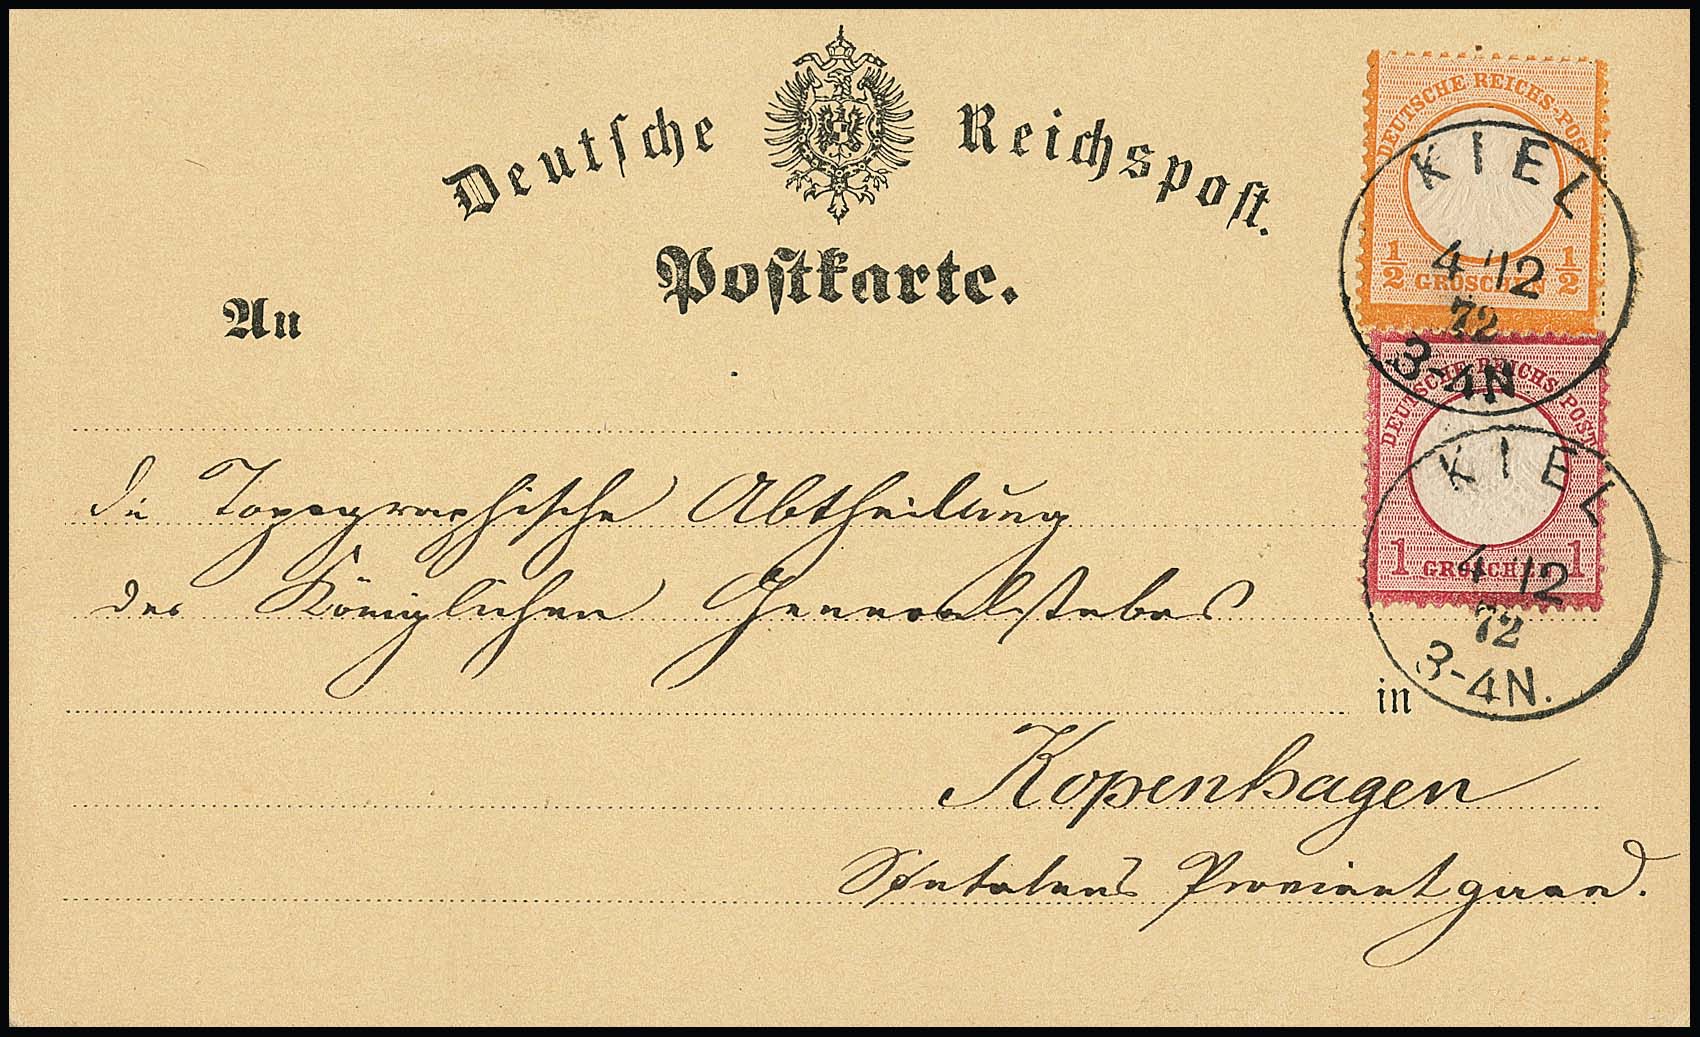 Deutsche Reichspost.
Postkarte.
An
die Topographische Abtheilung
des Königlichen Generalstabes
in
Kopenhagen
Proviantgaard.
DEUTSCHE REICHS-POST
1/2 GROSCHEN 1/2
KIEL
4 12
72
3-4N
DEUTSCHE REICHS-POST
1 GROSCHEN 1
KIEL
4 12
72
3-4N.